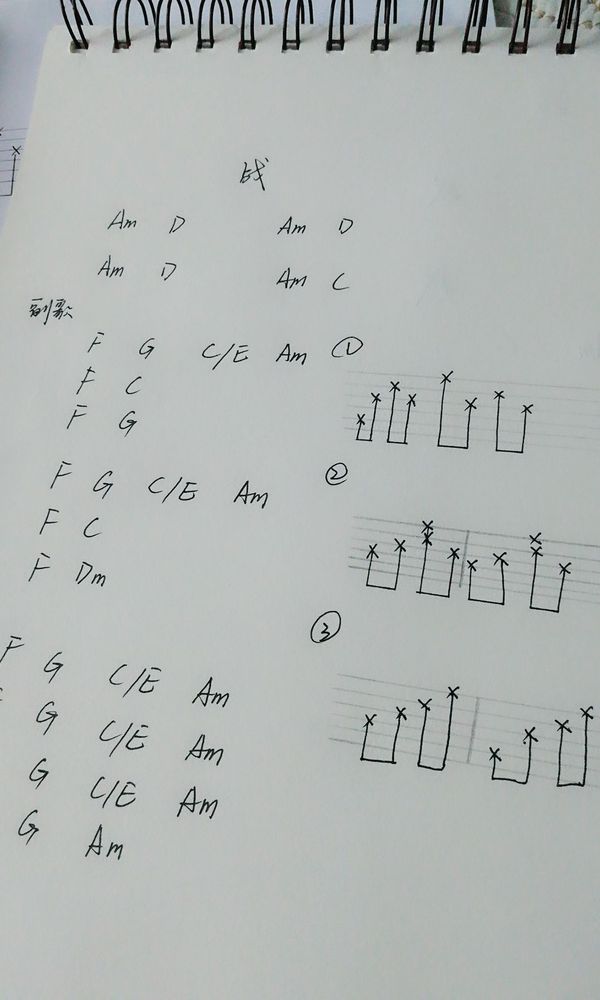 战
Am D Am D
Am D Am C
副歌
F G C/E Am
F C
F G
F G C/E Am
F C
F Dm
F G C/E Am
G C/E Am
G C/E Am
G Am
①
②
③